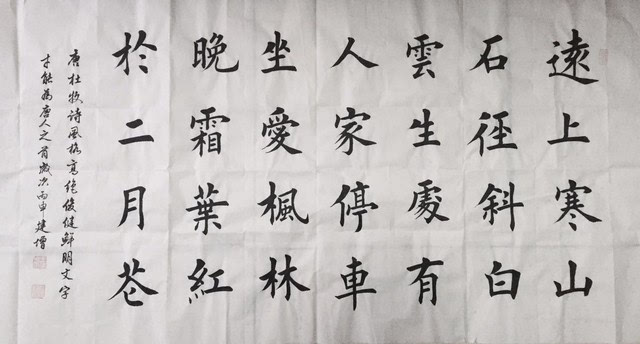 遠上寒山
石徑斜白
雲生處有
人家停車
坐愛楓林
晚霜葉紅
於二月花
唐杜牧詩風格高絕俊健鮮明文字
才能為唐人之首歲次丙申建增